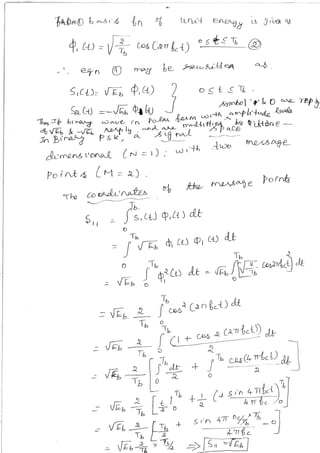 basis fn of unit energy is given
ϕ₁(t) = √(2/Tb) cos(2πfct) 0 ≤ t ≤ Tb ②
∴ eqn ① may be rewritten as.
S₁(t) = √Eb ϕ₁(t) } 0 ≤ t ≤ Tb.
S₂(t) = -√Eb ϕ₁(t) symbol 1 & 0 are rep by
The I/p binary wave in polar form with amplitude levels
of √Eb & -√Eb resply and are multiplied by
In Binary PSK, a signal space
dimensional (N = 1); with two message
points (M = 2).
The co ordinates of the message points
S₁₁ = ∫₀^Tb S₁(t) ϕ₁(t) dt
= ∫₀^Tb √Eb ϕ₁(t) ϕ₁(t) dt
= √Eb ∫₀^Tb ϕ₁²(t) dt = √Eb ∫₀^Tb [√(2/Tb) cos 2πfct]² dt
= √Eb 2/Tb ∫₀^Tb cos²(2πfct) dt
= √Eb 2/Tb ∫₀^Tb (1 + cos 2(2πfct))/2 dt
= √Eb 2/Tb [∫₀^Tb dt/2 + ∫₀^Tb cos(4πfct)/2 dt]
= √Eb 2/Tb [t/2 |₀^Tb + 1/2 (sin 4πfct / 4πfc)₀^Tb]
= √Eb 2/Tb [Tb/2 + sin 4π n/Tb × Tb / 4πfc - 0]
= √Eb 2/Tb × Tb/2 ⇒ S₁₁ = √Eb